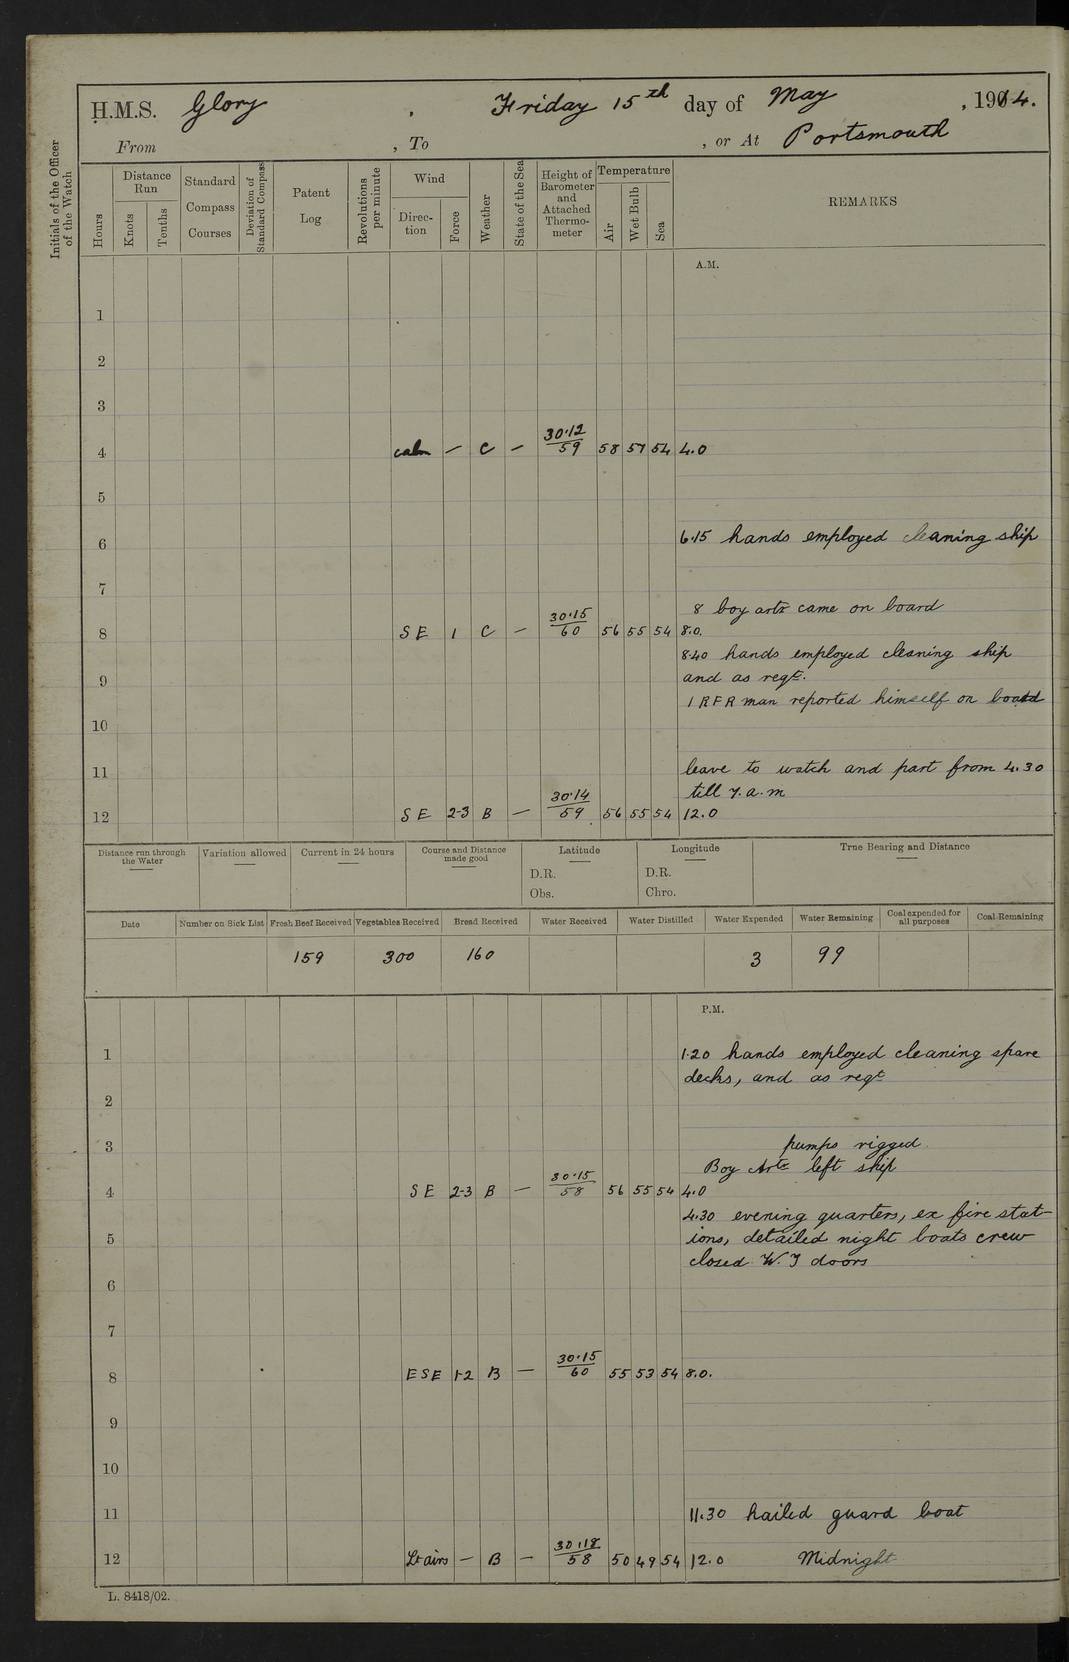 H.M.S. Glory , Friday 15th day of May , 1914.
From , To , or At Portsmouth
Initials of the Officer of the Watch
Hours
Distance Run
Knots
Tenths
Standard Compass Courses
Deviation of Standard Compass
Patent Log
Revolutions per minute
Wind
Direc-tion
Force
Weather
State of the Sea
Height of Barometer and Attached Thermo-meter
Temperature
Air
Wet Bulb
Sea
REMARKS
A.M.
1
2
3
4 calm — C — 30.12/59 58 57 54 4.0
5
6 6.15 hands employed cleaning ship
7
8 boy artrs came on board
8 SE 1 C — 30.15/60 56 55 54 8.0.
8.40 hands employed cleaning ship
9 and as reqt.
1 RFR man reported himself on board
10
11 leave to watch and part from 4.30
till 7. a.m
12 SE 2-3 B — 30.14/59 56 55 54 12.0
Distance run through the Water
Variation allowed
Current in 24 hours
Course and Distance made good
Latitude
D.R.
Obs.
Longitude
D.R.
Chro.
True Bearing and Distance
Date Number on Sick List Fresh Beef Received Vegetables Received Bread Received Water Received Water Distilled Water Expended Water Remaining Coal expended for all purposes Coal Remaining
159 300 160 3 99
P.M.
1 1.20 hands employed cleaning spare
decks, and as reqt
2
3 pumps rigged
Boy Artrs left ship
4 SE 2-3 B — 30.15/58 56 55 54 4.0
4.30 evening quarters, ex fire stat-
5 ions, detailed night boats crew
closed W.T doors
6
7
8 ESE 1-2 B — 30.15/60 55 53 54 8.0.
9
10
11 11.30 hailed guard boat
12 Lt airs — B — 30.18/58 50 49 54 12.0 Midnight
L. 8418/02.